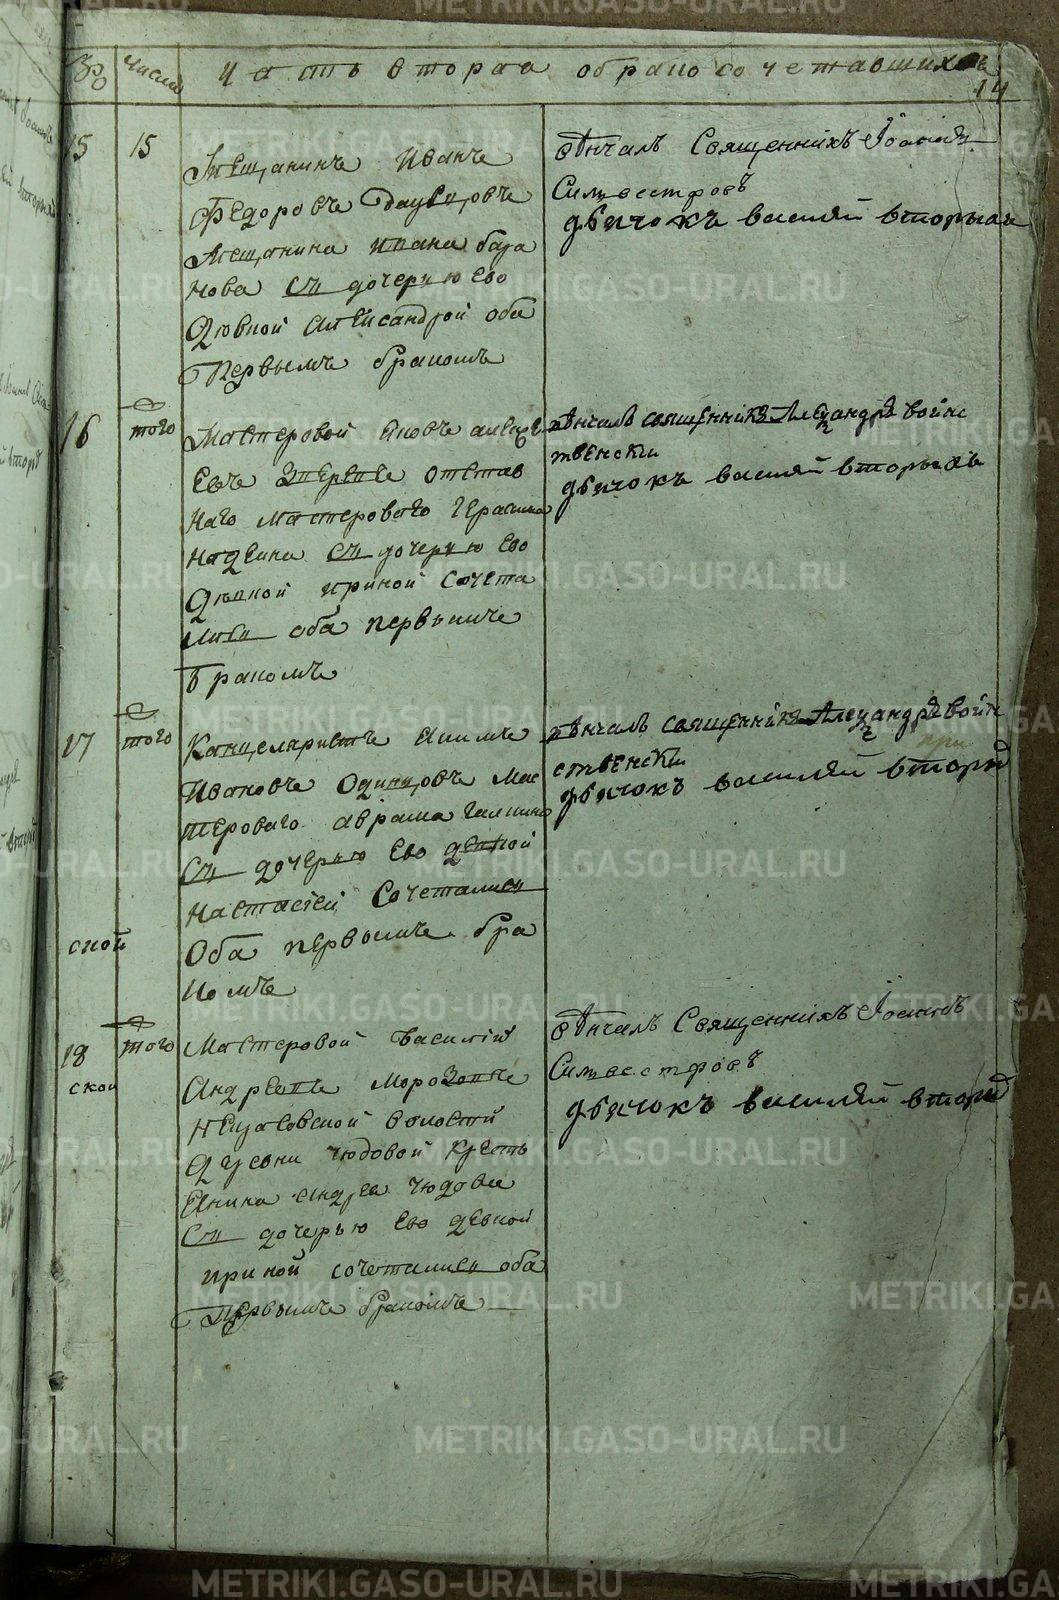 Часть вторая о бракосочетавшихся
14
15
15
Мещанинъ Иванъ
Федоровъ
Мещанина Ивана Бара
нова съ дочерью ево
дѣвкой Александрой оба
Первымъ бракомъ
вѣнчалъ Священникъ Іоаннъ
Силвестровъ
дьячокъ василяй вторыхъ
16
того
Мастеровой Яковъ
евъ Зверевъ отстав
наго мастероваго Герасима
съ дочерью ево
дѣвкой Ириной Сочета
лись оба первымъ
бракомъ
вѣнчалъ священникъ Александръ воинс
твенски
дьячокъ василяй вторыхъ
17
того
Канцеляристъ Акимъ
Ивановъ Одинцовъ мас
тероваго аврама
съ дочерью ево девкой
Настасіей Сочетались
Оба первымъ бра
комъ
вѣнчалъ священникъ Александръ войн
ственски
дьячокъ василяй вторы
ской
18
того
ской
Мастеровой Василій
Андреевъ Морозовъ
волости
деревни Чюдовой кресть
янина Андрея Чюдова
съ дочерью ево девкой
Ириной сочетались оба
Первымъ бракомъ
вѣнчалъ Священникъ Іоаннъ
Силвестровъ
дьячокъ василяй вторы
METRIKI.GASO-URAL.RU